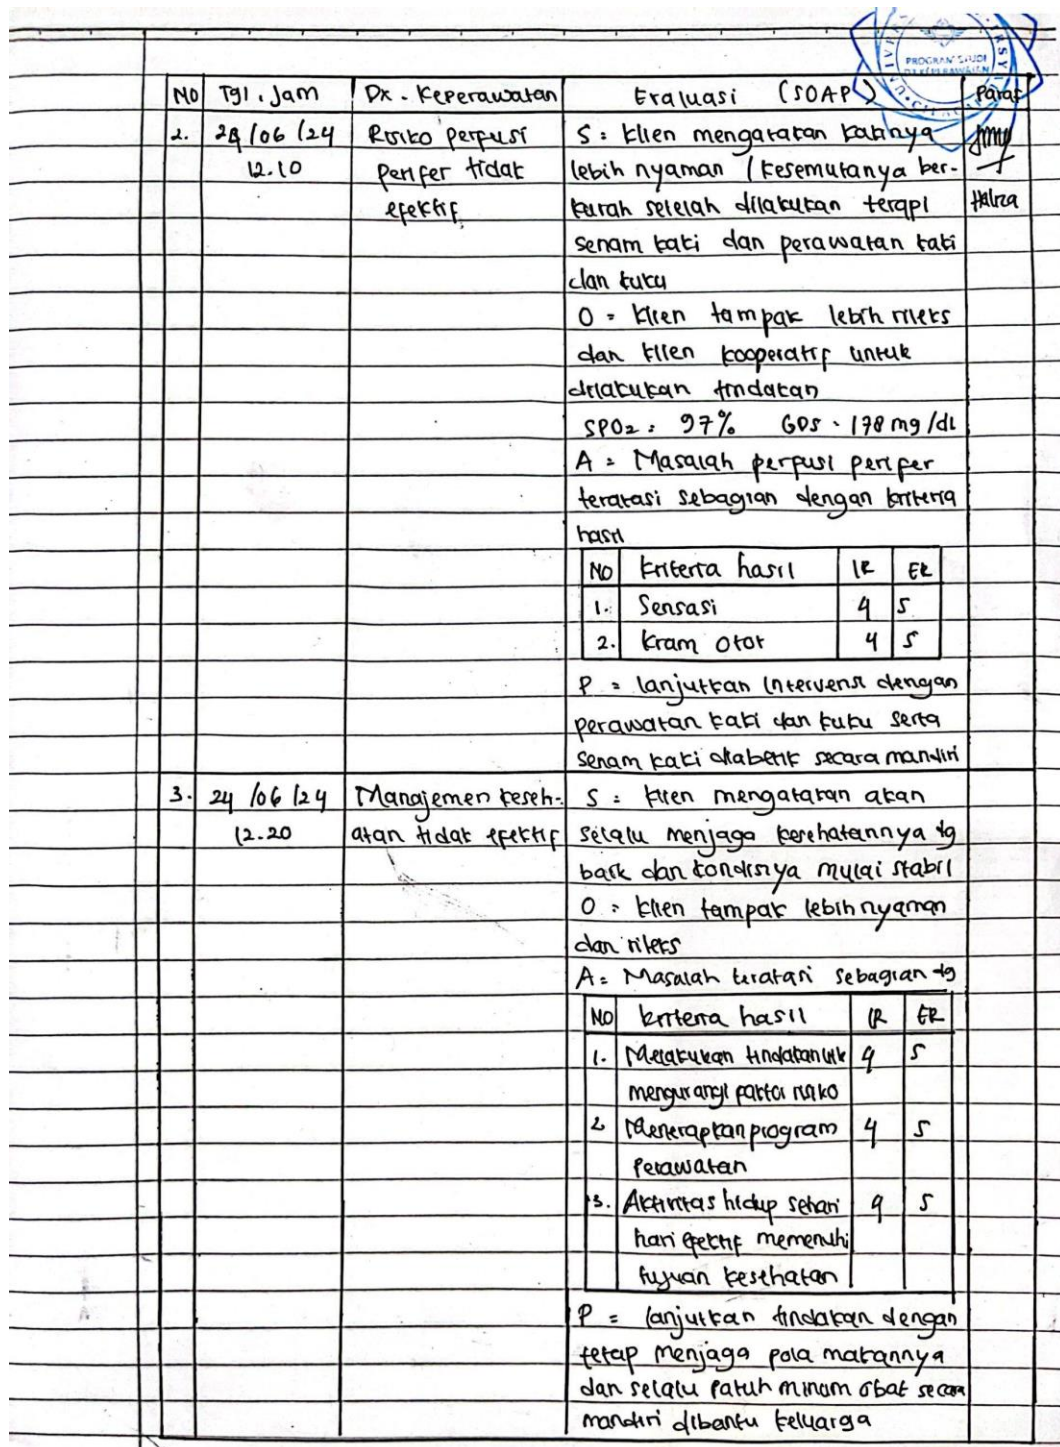 PROGRAM STUDI
NO Tgl. Jam Dx. Keperawatan Evaluasi (SOAP) Paraf
2. 24/06/24 Risiko perfusi S : Klien mengatakan kakinya
12.10 perifer tidak lebih nyaman (kesemutanya ber-
efektif kurah setelah dilakukan terapi Haliza
senam kaki dan perawatan kaki
dan kuku
O = Klien tampak lebih rileks
dan klien kooperatif untuk
dilakukan tindakan
SPO2 : 97% GDS : 178 mg/dl
A = Masalah perfusi perifer
teratasi sebagian dengan kriteria
hasil
NO Kriteria hasil IR ER
1. Sensasi 4 5
2. Kram Otot 4 5
P = lanjutkan intervensi dengan
perawatan kaki dan kuku serta
senam kaki diabetik secara mandiri
3. 24/06/24 Manajemen keseh- S : Klien mengatakan akan
12.20 atan tidak efektif selalu menjaga kesehatannya dg
baik dan kondisiya mulai stabil
O : Klien tampak lebih nyaman
dan rileks
A = Masalah teratasi sebagian dg
NO kriteria hasil IR ER
1. Melakukan tindakan utk 4 5
mengurangi faktor risiko
2 Menerapkan program 4 5
Perawatan
3. Aktivitas hidup sehari 4 5
hari efektif memenuhi
tujuan kesehatan
P = lanjutkan tindakan dengan
tetap menjaga pola makannya
dan selalu patuh minum obat secara
mandiri dibantu keluarga